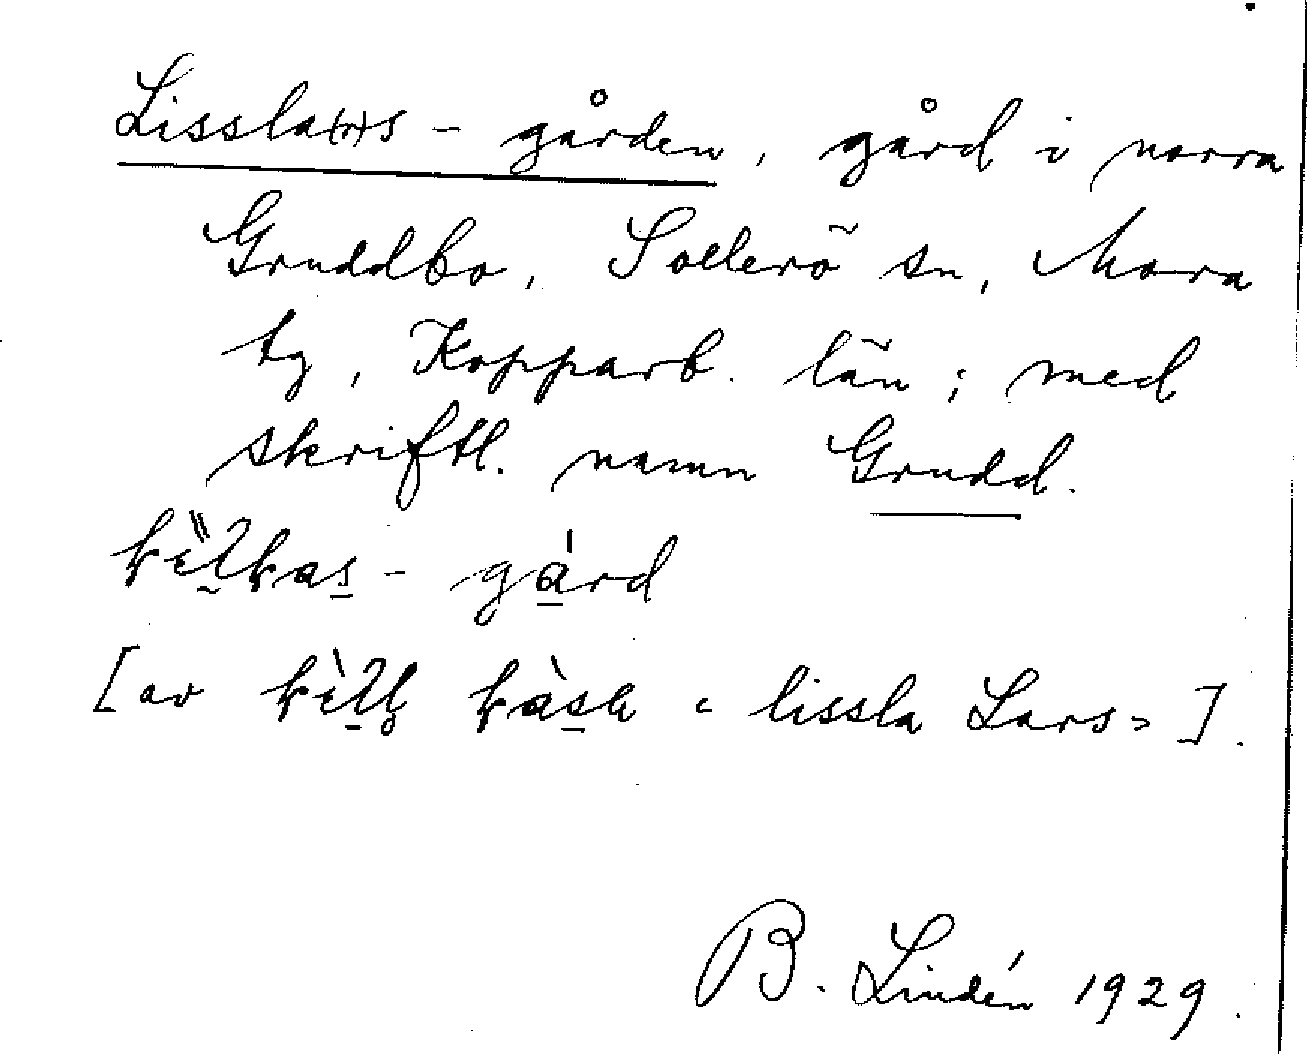 Lissla(r)s-gården, gård i norra
Gruddbo, Sollerö sn, Mora
tg, Kopparb. län; med
skriftl. namn Grudd.
gård
[av lissla Lars>].
B. Lindén 1929.